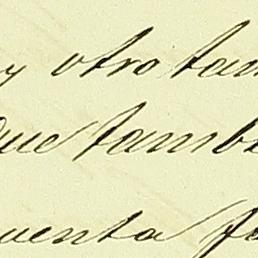 y otro tam
que tambi
uenta fo